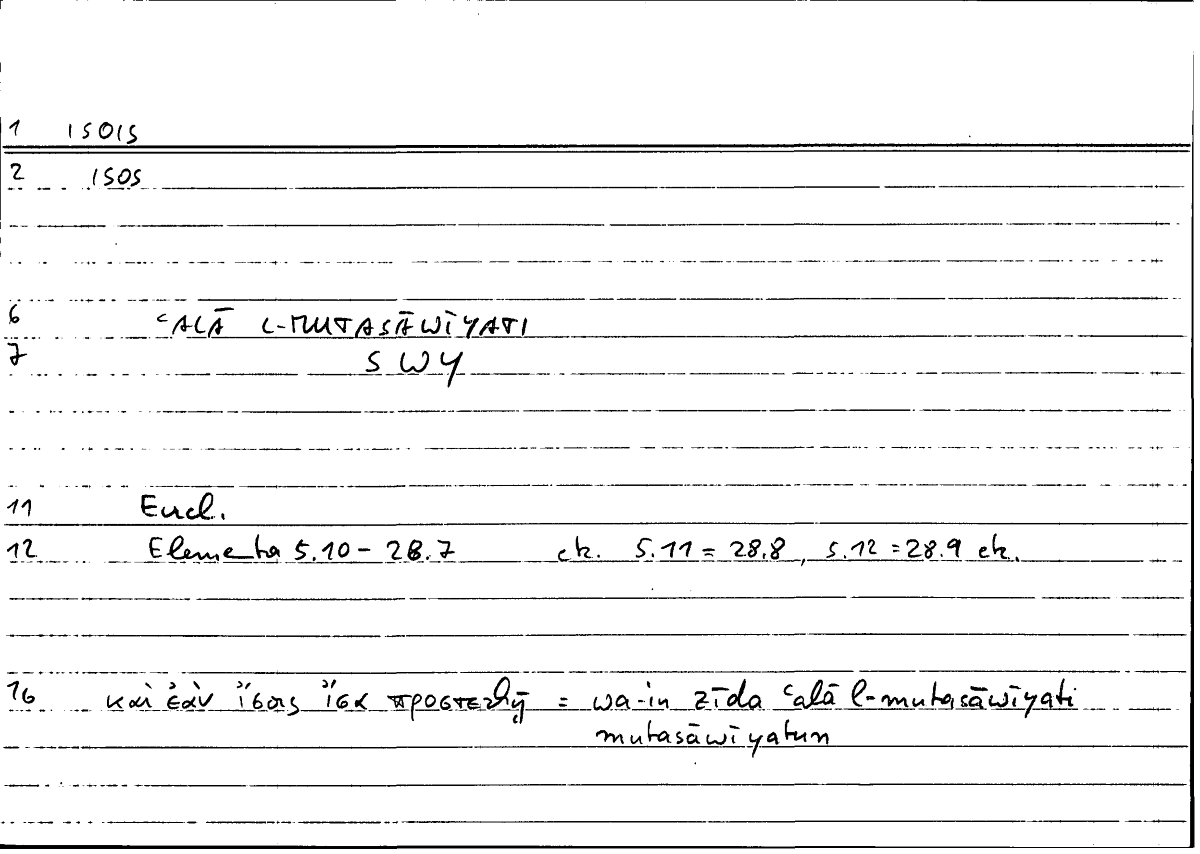 1 ISOIS
2 ISOS
6 ʿALĀ L-MUTASĀWĪYATI
7 SWY
11 Eucl.
12 Elementa 5.10 - 28.7 etc. 5.11 = 28.8, 5.12 = 28.9 etc.
16 καὶ ἐὰν ἴσοις ἴσα προστεθῇ = wa-in zīda ʿalā l-mutasāwīyati
mutasāwīyatun